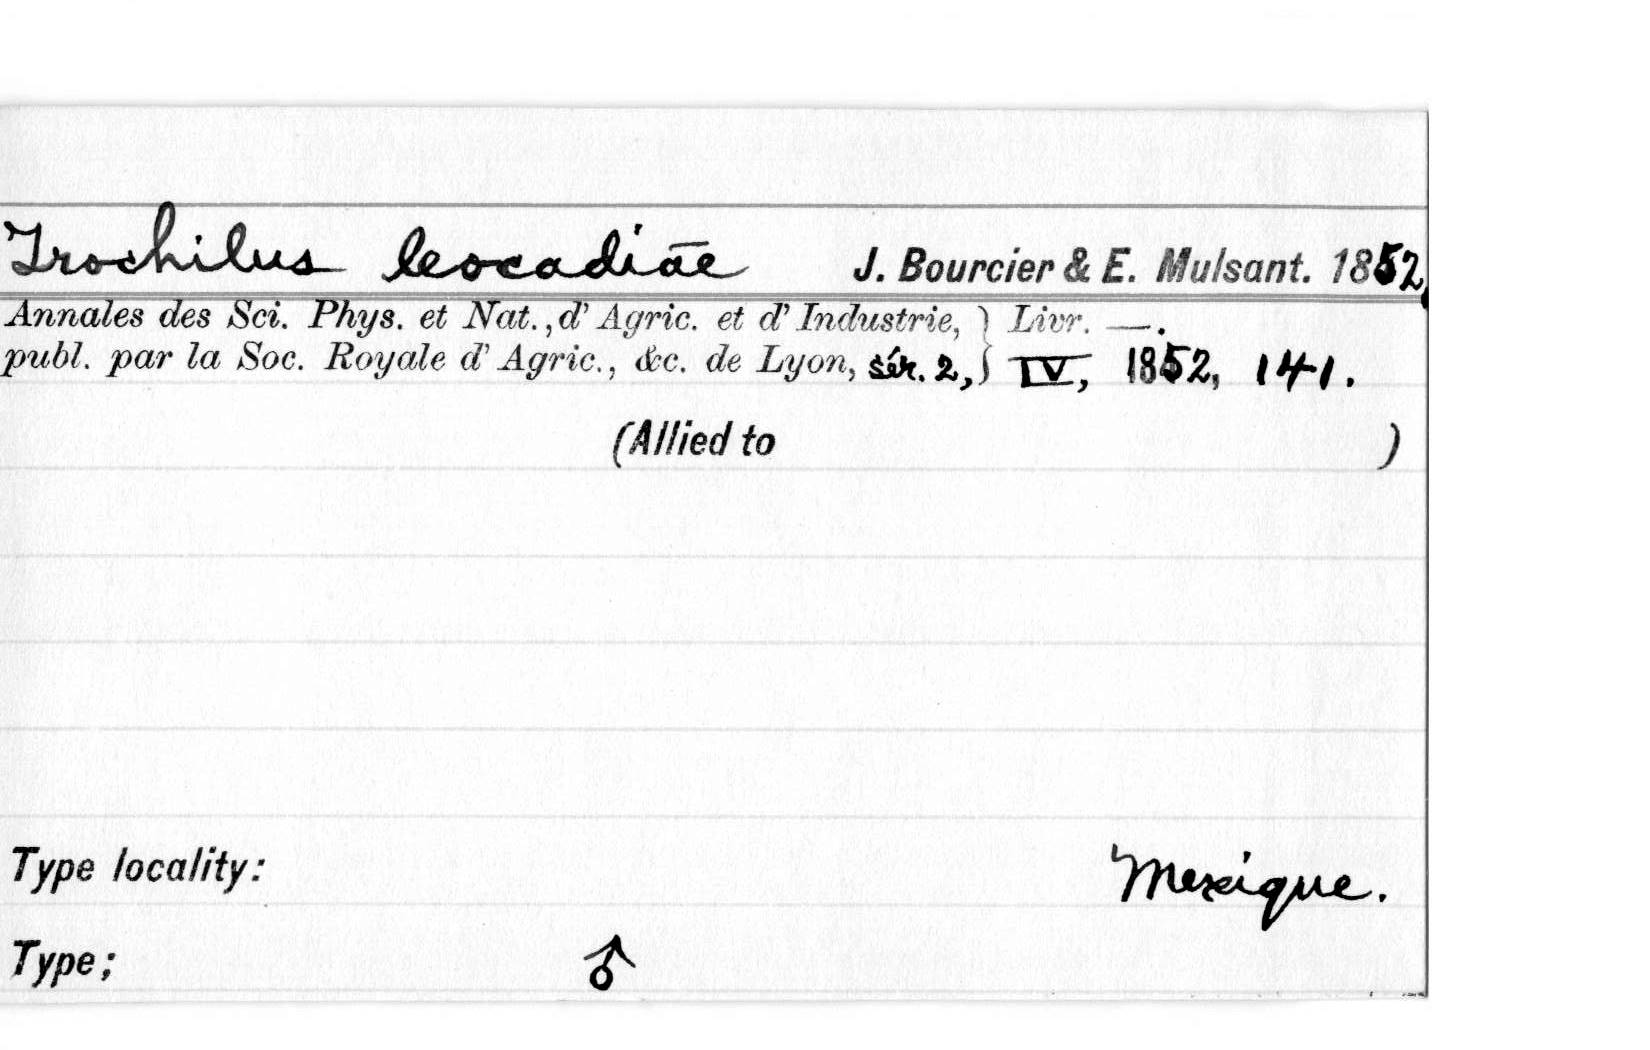 Trochilus leocadiae J. Bourcier & E. Mulsant. 1852,
Annales des Sci. Phys. et Nat., d' Agric. et d' Industrie, } Livr. —.
publ. par la Soc. Royale d' Agric., &c. de Lyon, sér. 2, } IV, 1852, 141.
(Allied to )
Type locality: Mexique.
Type; ♂